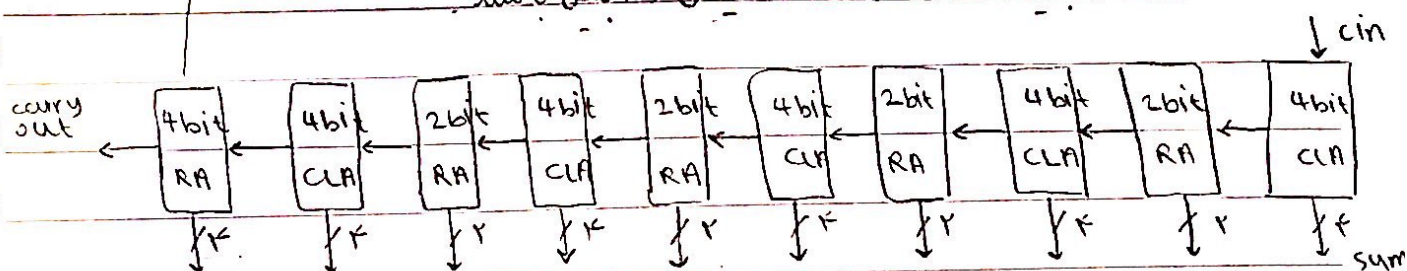 cin
carry out
4bit RA
4bit CLA
2bit RA
4bit CLA
2bit RA
4bit CLA
2bit RA
4bit CLA
2bit RA
4bit CLA
۴ ۴ ۲ ۴ ۲ ۴ ۲ ۴ ۲ ۴
sum